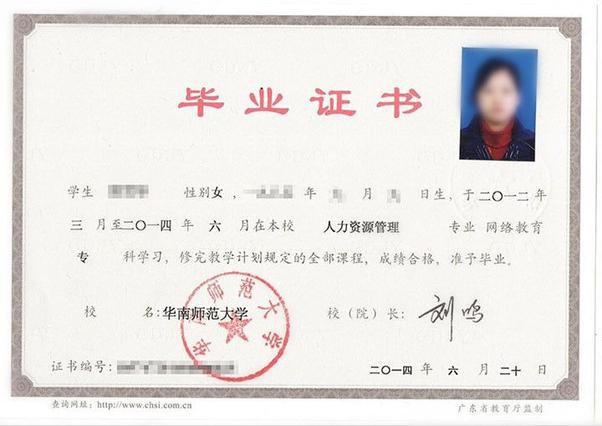 毕业证书
学生 性别女， 年 月 日生，于二〇一二年
三 月至二〇一四年 六 月在本校 人力资源管理 专业 网络教育
专 科学习，修完教学计划规定的全部课程，成绩合格，准予毕业。
校 名：华南师范大学 校（院）长：刘鸣
华南师范大学
证书编号： 二〇一四年 六 月 二十 日
查询网址：http://www.chsi.com.cn 广东省教育厅监制